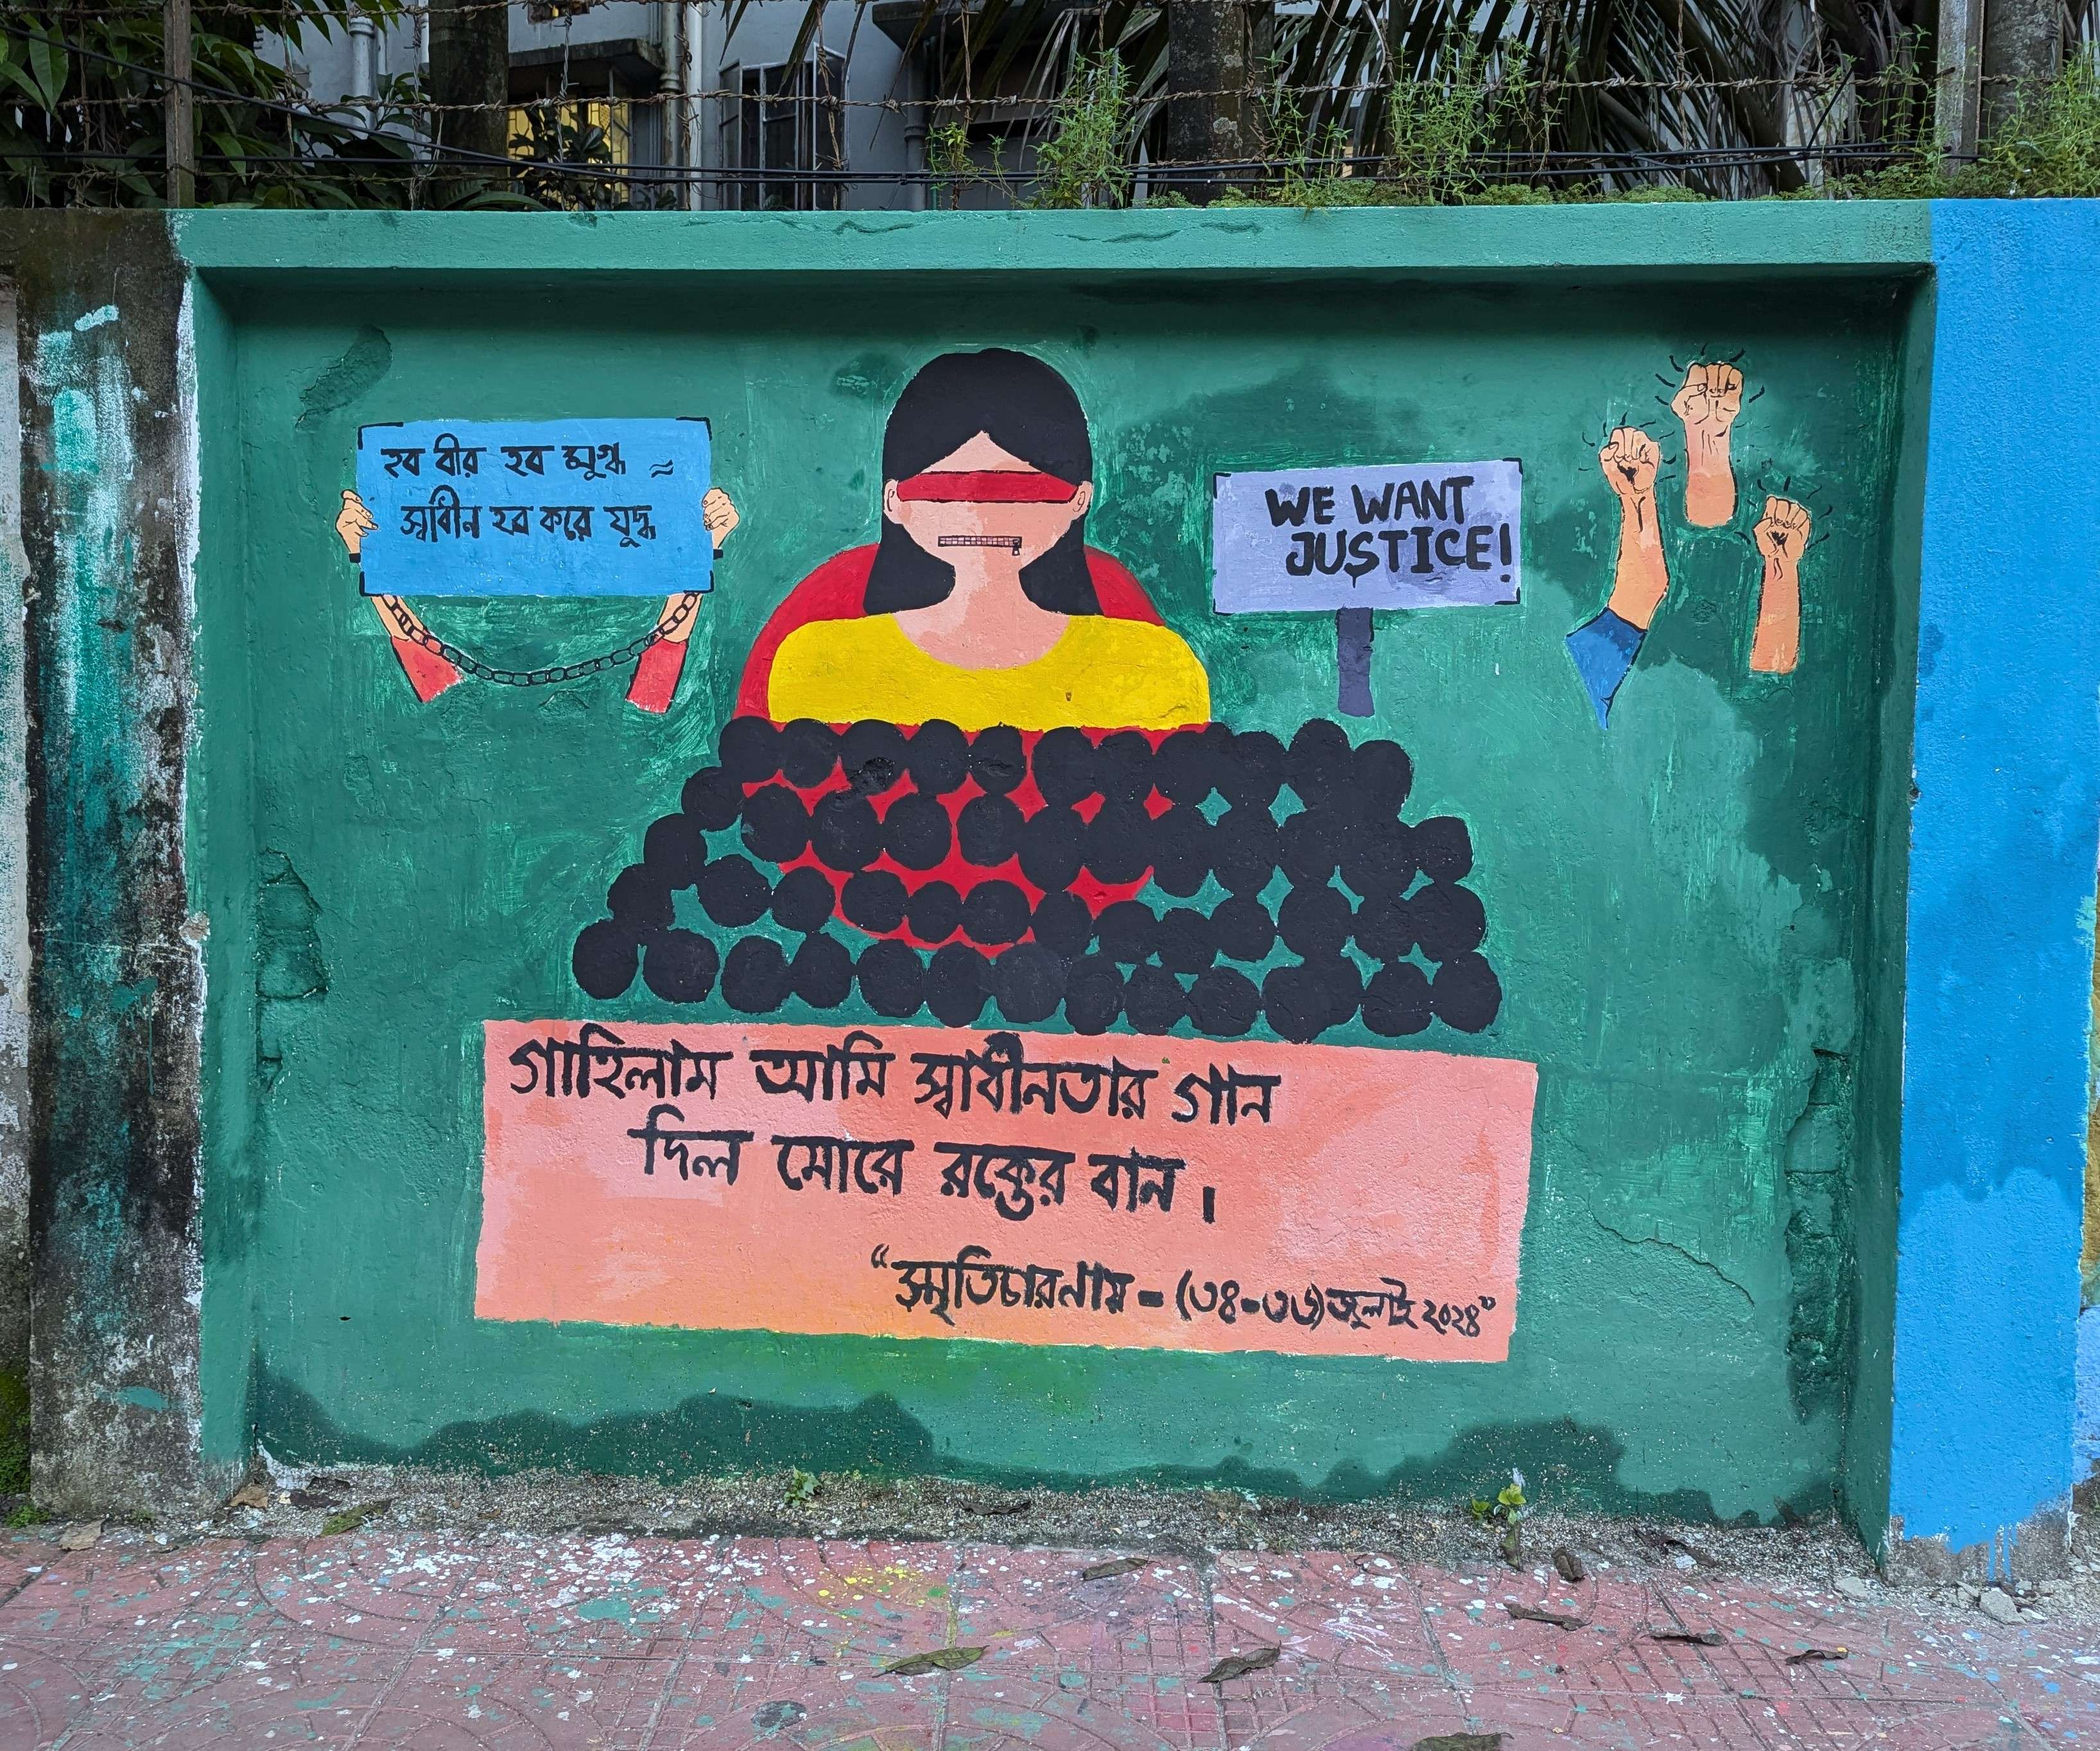 হব বীর হব মুগ্ধ
স্বাধীন হব করে যুদ্ধ
WE WANT
JUSTICE!
গাহিলাম আমি স্বাধীনতার গান
দিল মোরে রক্তের বান।
“স্মৃতিচারনায় - (৩৪-৩৬) জুলাই ২০২৪”